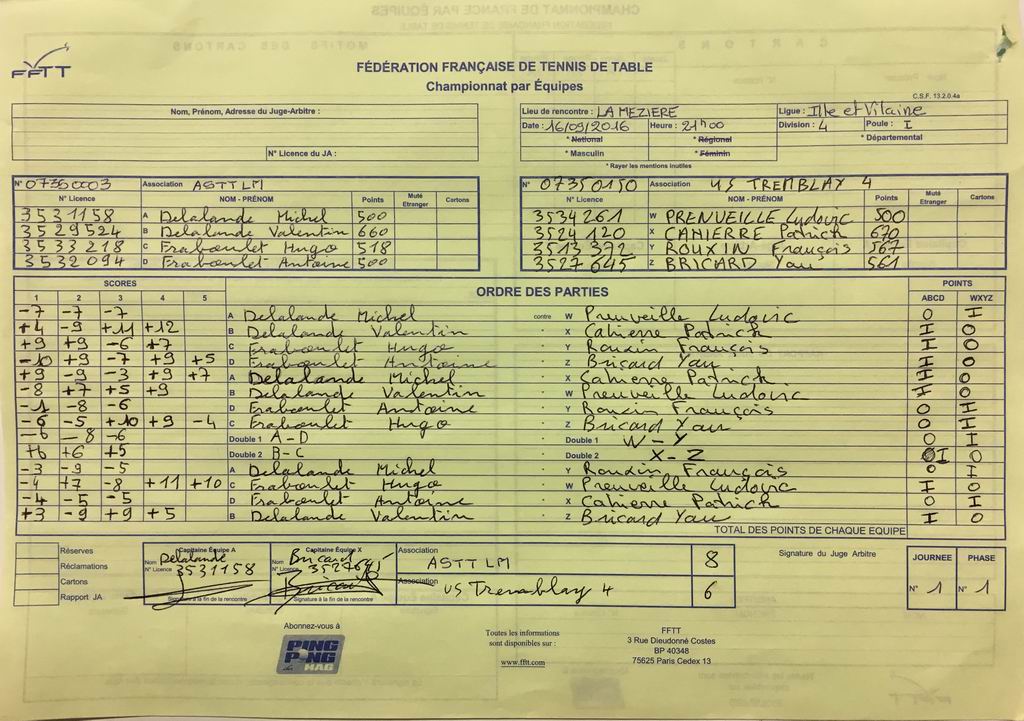 FFTT
FÉDÉRATION FRANÇAISE DE TENNIS DE TABLE
Championnat par Équipes
C.S.F. 13.2.0.4a
Nom, Prénom, Adresse du Juge-Arbitre :
N° Licence du JA :
Lieu de rencontre : LA MEZIERE Ligue : Ille et Vilaine
Date : 16/09/2016 Heure : 21h00 Division : 4 Poule : I
* National * Régional * Départemental
* Masculin * Féminin
* Rayer les mentions inutiles
N° 07350003 Association ASTT LM
N° Licence NOM - PRÉNOM Points Muté Etranger Cartons
3531158 A Delalande Michel 500
3529524 B Delalande Valentin 660
3533218 C Fraboulet Hugo 518
3532094 D Fraboulet Antoine 500
N° 07350150 Association US TREMBLAY 4
N° Licence NOM - PRÉNOM Points Muté Etranger Cartons
3534261 W PRENVEILLE Ludovic 500
3524120 X CAHIERRE Patrick 670
3513372 Y ROUXIN François 567
3527645 Z BRICARD Yau 561
SCORES ORDRE DES PARTIES POINTS
1 2 3 4 5 ABCD WXYZ
-7 -7 -7 A Delalande Michel contre W Prenveille Ludovic 0 I
+4 -9 +11 +12 B Delalande Valentin X Cahierre Patrick I 0
+9 +9 -6 +7 C Fraboulet Hugo Y Rouxin François I 0
-10 +9 -7 +9 +5 D Fraboulet Antoine Z Bricard Yau I 0
+9 -9 -3 +9 +7 A Delalande Michel X Cahierre Patrick I 0
-8 +7 +5 +9 B Delalande Valentin W Prenveille Ludovic I 0
-1 -8 -6 D Fraboulet Antoine Y Rouxin François 0 I
-6 -5 +10 +9 -4 C Fraboulet Hugo Z Bricard Yau 0 I
-6 -8 -6 Double 1 A-D Double 1 W-Y 0 I
+6 +6 +5 Double 2 B-C Double 2 X-Z I 0
-3 -9 -5 A Delalande Michel Y Rouxin François 0 I
-4 +7 -8 +11 +10 C Fraboulet Hugo W Prenveille Ludovic I 0
-4 -5 -5 D Fraboulet Antoine X Cahierre Patrick 0 I
+3 -9 +9 +5 B Delalande Valentin Z Bricard Yau I 0
TOTAL DES POINTS DE CHAQUE EQUIPE
Réserves
Réclamations
Cartons
Rapport JA
Capitaine Équipe A
Nom Delalande
N° Licence 3531158
Signature à la fin de la rencontre
Capitaine Équipe X
Nom Bricard
N° Licence 3527645
Signature à la fin de la rencontre
Association ASTT LM 8
Association US Tremblay 4 6
Signature du Juge Arbitre
JOURNEE PHASE
N° 1 N° 1
Abonnez-vous à
PING PONG MAG
Toutes les informations
sont disponibles sur :
www.fftt.com
FFTT
3 Rue Dieudonné Costes
BP 40348
75625 Paris Cedex 13